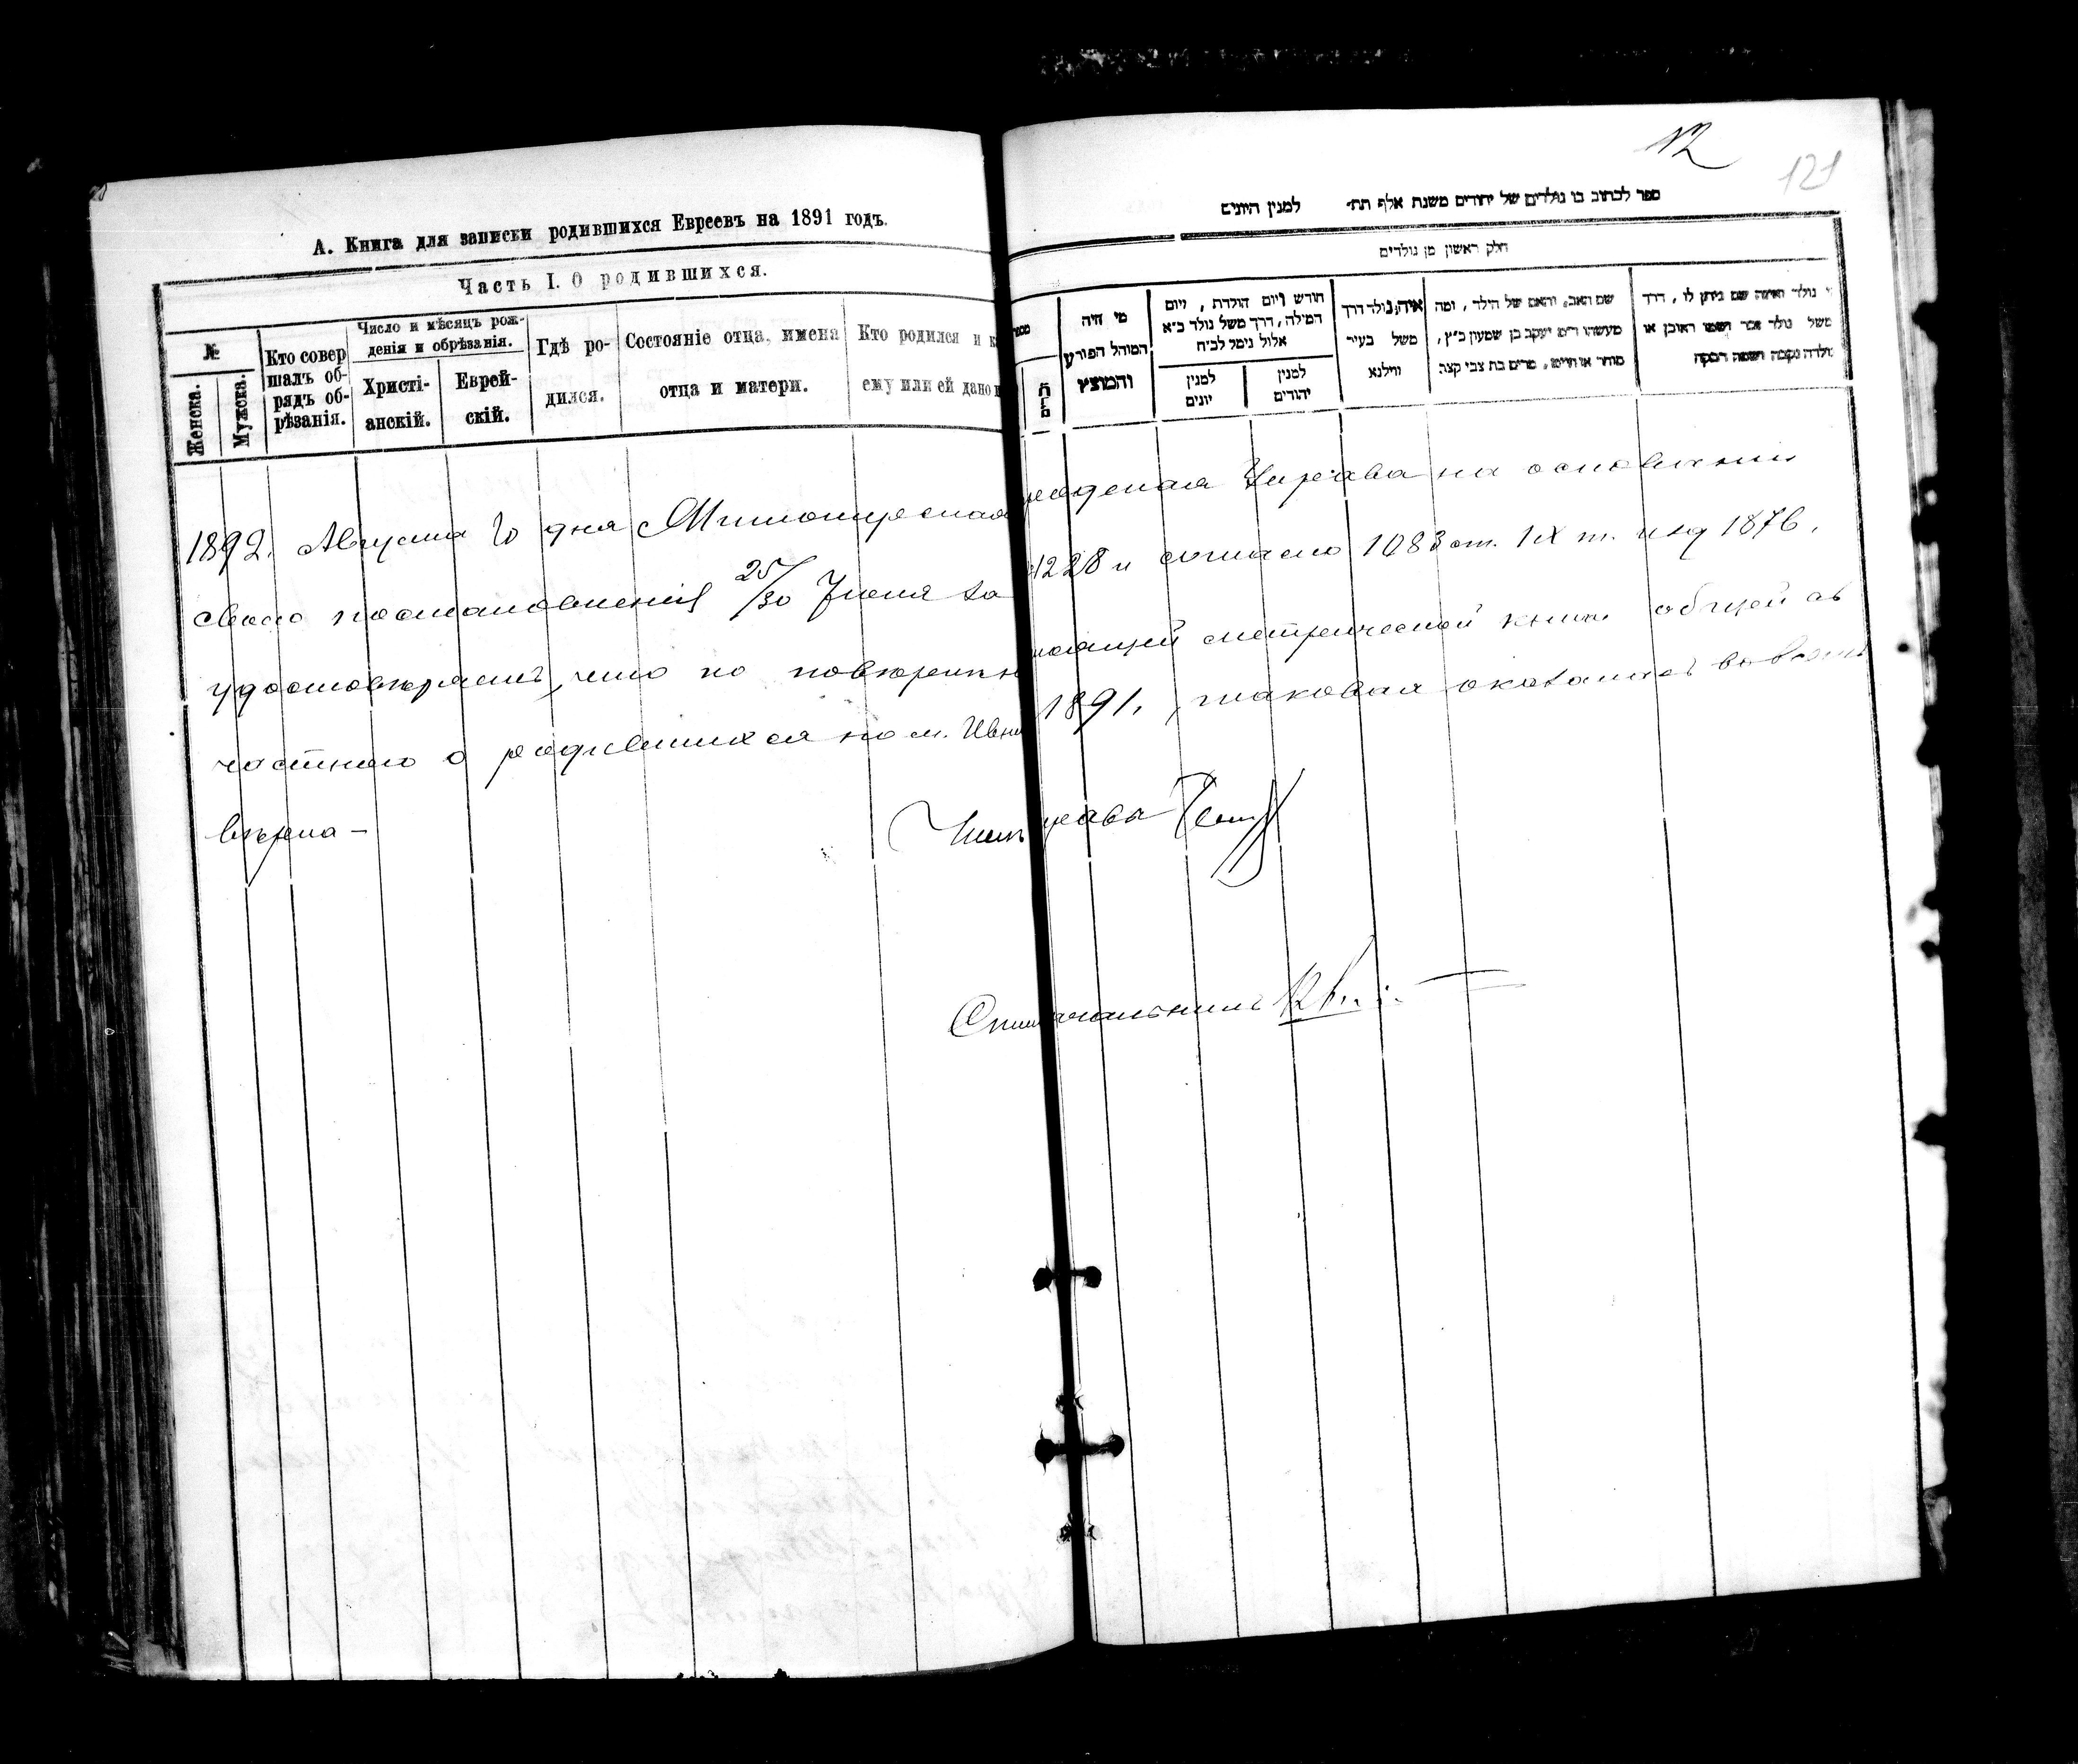 А. Книга для записки родившихся Евреевъ на 1891 годъ.
Часть I. О родившихся.
№
Женска.
Мужска.
Кто совер
шалъ об-
рядъ об-
рѣзанія.
Число и мѣсяцъ рож-
денія и обрѣзанія.
Христі-
анскій.
Еврей-
скій.
Гдѣ ро-
дился.
Состояніе отца, имена
отца и матери.
Кто родился и к
ему или ей дано и
12
121
ספר לכתוב בו נולדים של יהודים משנת אלף תת״ למנין היונים
חלק ראשון מן נולדים
מי היה
המוהל הפורע
והמוצץ
חודש ויום הולדת, ויום
המילה, דרך משל נולד כ״א
אלול נימל לכ״ח
למנין
יונים
למנין
יהודים
איה נולד דרך
משל בעיר
ווילנא
שם האב, והאם של הילד, ומה
מעשהו ד״מ יעקב בן שמעון כ״ץ,
סוחר או חייט, מרים בת צבי קצב
נולד ואיזה שם ניתן לו, דרך
משל נולד זכר ושמו ראובן או
נולדה נקבה ושמה רבקה
1892. Августа дня родская Управа на основании
своего постановления 25/30 Июня за 1228 и согласно 1083 ст. IX т. изд 1876.
удостоверяетъ, что по поверки метрической книги общей съ
частною о родившихся по м. 1891. , таковая оказалась во всемъ
верна —
Членъ Управы
Столоначальникъ